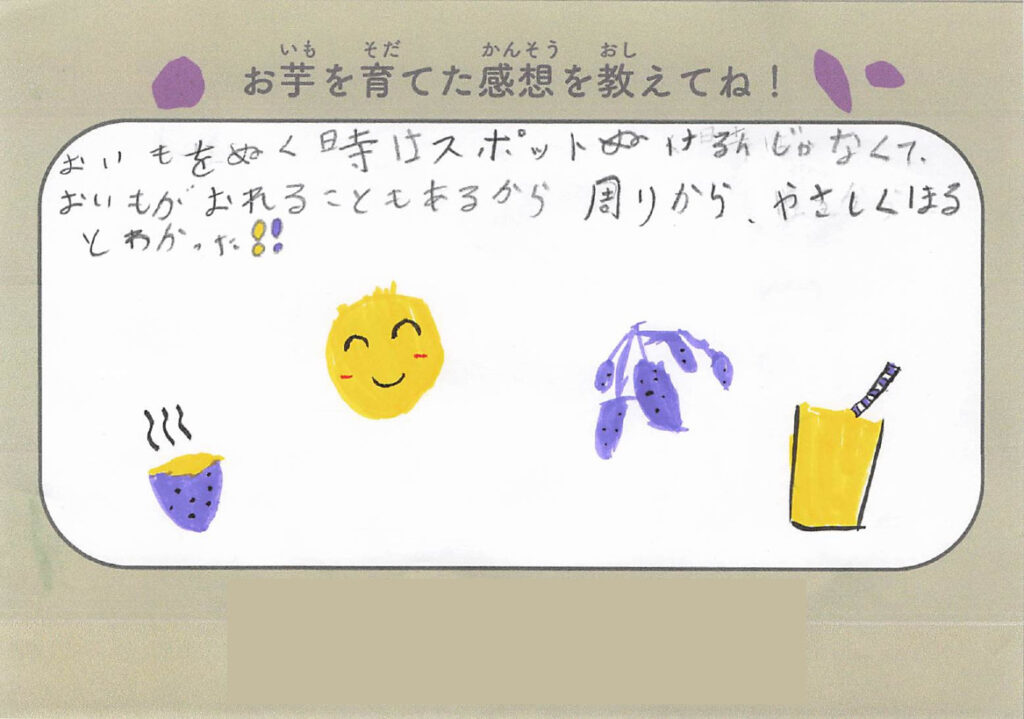 いも そだ かんそう おし
お芋を育てた感想を教えてね！
おいもをぬく時はスポットぬけるんじゃなくて、
おいもがおれることもあるから周りから、やさしくほる
とわかった!!